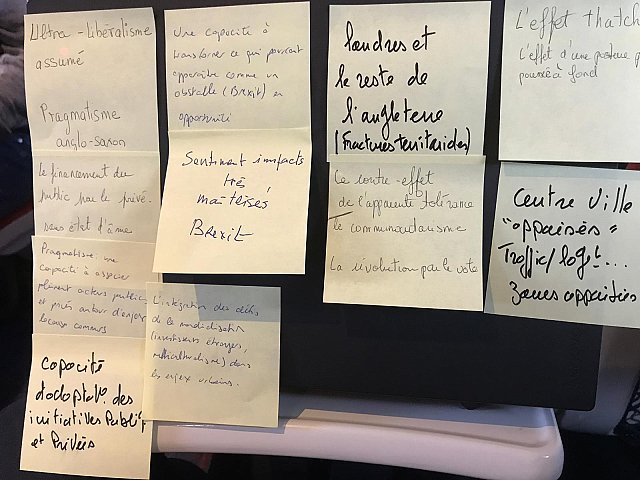 Ultra-libéralisme
assumé
Pragmatisme
anglo-saxon
Le financement du
public par le privé.
sans état d'âme
Pragmatisme, une
capacité à associer
acteurs publics
et privés autour d'enjeux
locaux communs
Capacité
d'adaptat° des
initiatives Publiq
et Privés
Une capacité à
transformer ce qui pourrait
apparaître comme un
obstacle (Brexit) en
opportunité
Sentiment impacts
très
maîtrisés
Brexit
L'intégration des défis
de la mondialisation
(investisseurs étrangers,
multiculturalisme) dans
les enjeux urbains.
Londres et
le reste de
l'angleterre
(fractures territoriales)
Le contre-effet
de l'apparente tolérance
le communautarisme
La révolution par le vote
L'effet thatch
L'effet d'une posture p
poussée à fond
Centre ville
"appaisés"
Traffic/logt...
zones appaisées